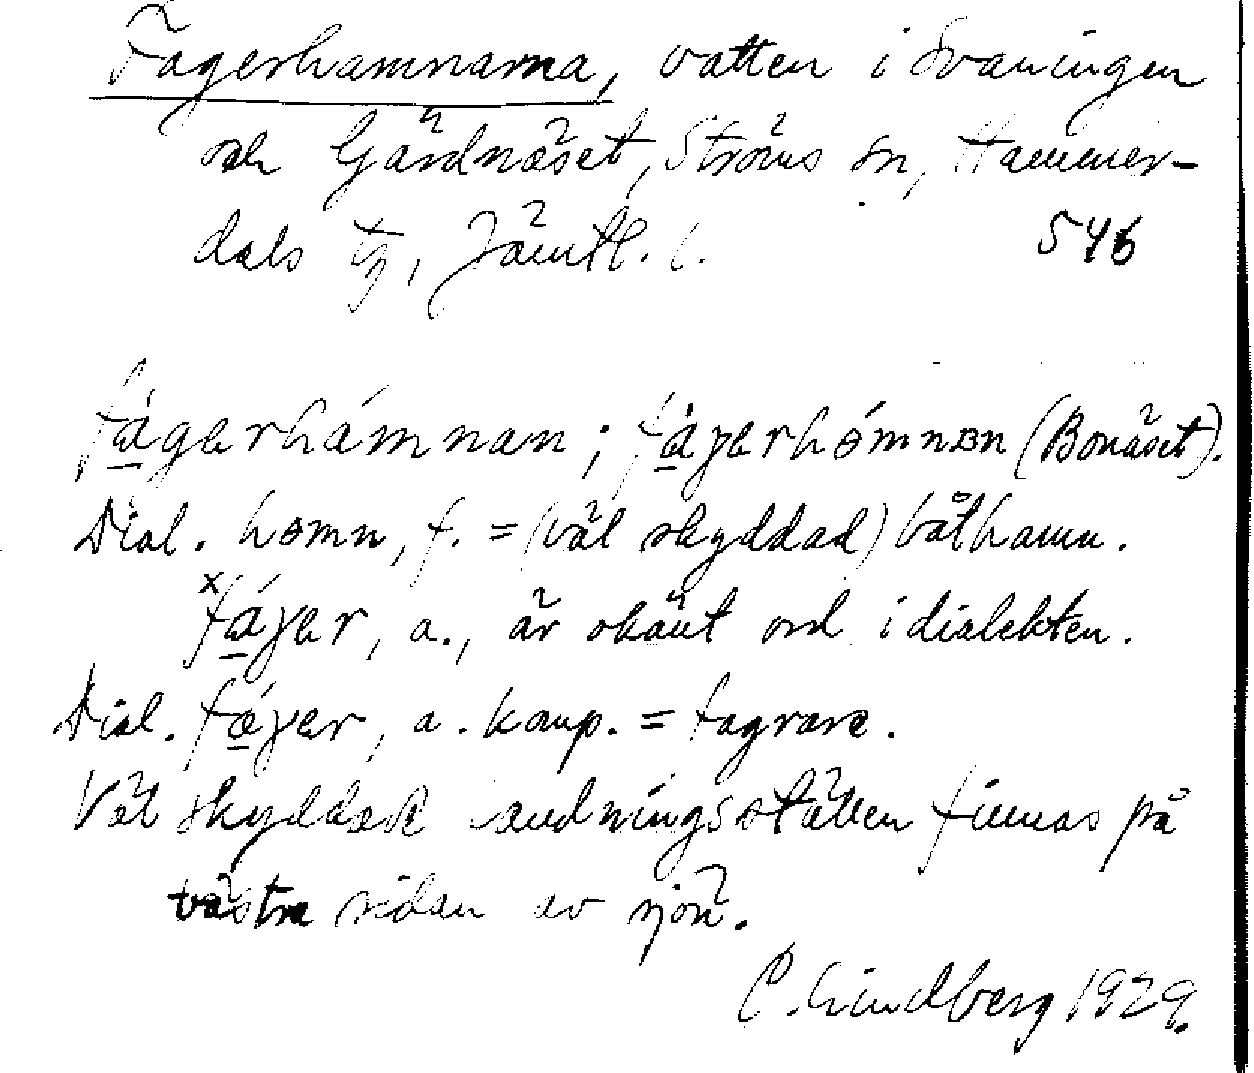 Fagerhamnarna, vatten i Svaningen
och Gärdnäset, Ströms sn, Hammer-
dals tg, Jämtl. l. 546
fá̲gərhámnan; fá̲gərhɵ́mnɒn (Bonäset).
Dial. hɵmn, f. = (väl skyddad) båthamn.
ˣfá̲gər, a., är okänt ord i dialekten.
Dial. fǽ̲gər, a. komp. = fagrare.
Väl skyddade landningsställen finnas på
västra sidan av sjön.
C. Lindberg 1929.